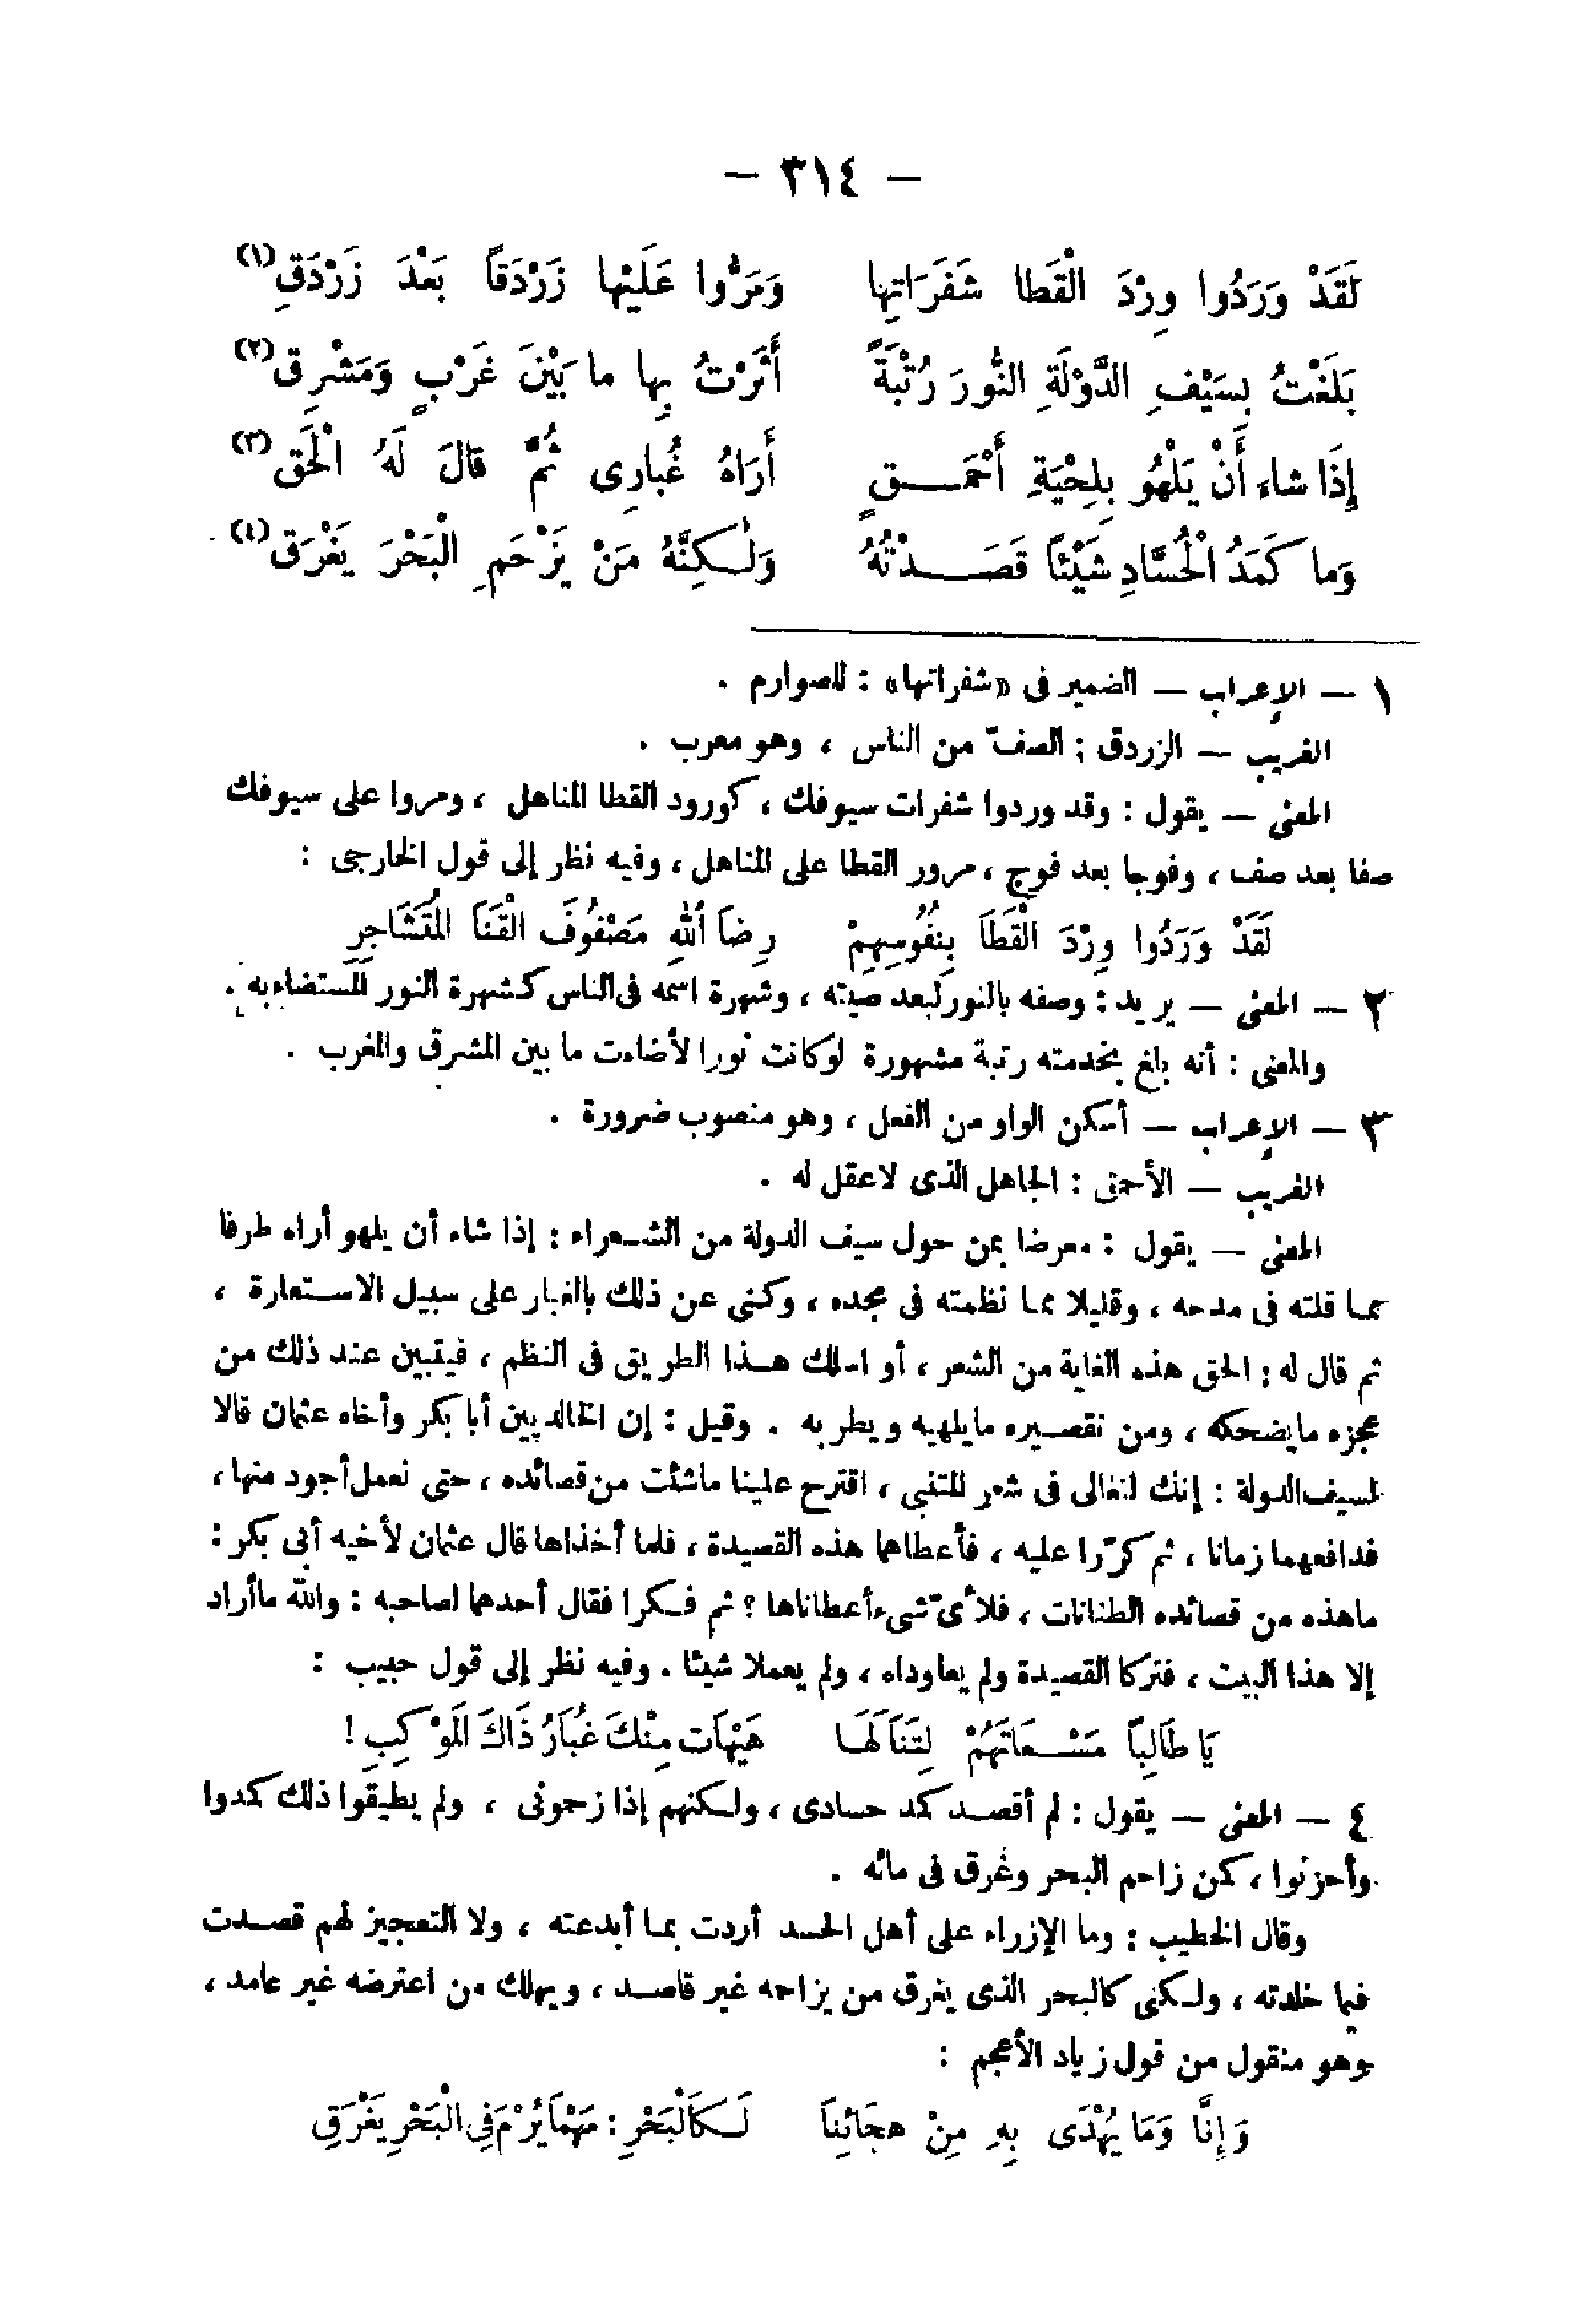 – ٣١٤ –
لَقَدْ وَرَدُوا وِرْدَ الْقَطا شَفَرَاتِها وَمَرُّوا عَلَيْها زَرْدَقاً بَعْدَ زَرْدَقِ(١)
بَلَغْتُ بِسَيْفِ الدَّوْلَةِ النُّورَ رُتْبَةً أَثَرْتُ بِها ما بَيْنَ غَرْبٍ وَمَشْرِقِ(٢)
إِذَا شاءَ أَنْ يَلْهُو بِلِحْيَةِ أَحْمَـــقٍ أَرَاهُ غُبارِى ثُمَّ قالَ لَهُ الْحَقِ(٣)
وَما كَمَدُ الْحُسَّادِ شَيْئاً قَصَـــدْتُهُ وَلٰـكِنَّهُ مَنْ يَزْحَمِ الْبَحْرَ يَغْرَقِ(٤)
١ – الإعراب – الضمير فى «شفراتها» : للصوارم .
الغريب – الزردق : الصفّ من الناس ، وهو معرب .
المعنى – يقول : وقد وردوا شفرات سيوفك ، كورود القطا المناهل ، ومروا على سيوفك
صفا بعد صف ، وفوجا بعد فوج ، مرور القطا على المناهل ، وفيه نظر إلى قول الخارجى :
لَقَدْ وَرَدُوا وِرْدَ الْقَطَا بِنُفُوسِهِمْ رِضَا اللهِ مَصْفُوفَ الْقَنَا المُتَشَاجِرِ
٢ – المعنى – يريد : وصفه بالنور لبعد صيته ، وشهرة اسمه فى الناس كشهرة النور المستضاء به .
والمعنى : أنه بلغ بخدمته رتبة مشهورة لو كانت نورا لأضاءت ما بين المشرق والمغرب .
٣ – الإعراب – أسكن الواو من الفعل ، وهو منصوب ضرورة .
الغريب – الأحمق : الجاهل الذى لا عقل له .
المعنى – يقول : معرضا بمن حول سيف الدولة من الشـعراء : إذا شاء أن يلهو أراه طرفا
مما قلته فى مدحه ، وقليلا مما نظمته فى مجده ، وكنى عن ذلك بالغبار على سبيل الاسـتعارة ،
ثم قال له : الحق هذه الغاية من الشعر ، أو اسلك هـذا الطريق فى النظم ، فيتبين عند ذلك من
عجزه ما يضحكه ، ومن تقصـيره ما يلهيه ويطربه . وقيل : إن الخالديين أبا بكر وأخاه عثمان قالا
لسيف الدولة : إنك لتغالى فى شعر المتنبى ، اقترح علينا ما شئت من قصائده ، حتى نعمل أجود منها ،
فدافعهما زمانا ، ثم كرّرا عليه ، فأعطاهما هذه القصيدة ، فلما أخذاها قال عثمان لأخيه أبى بكر :
ما هذه من قصائده الطنانات ، فلأىّ شىء أعطاناها ؟ ثم فـكرا فقال أحدهما لصاحبه : والله ما أراد
إلا هذا البيت ، فتركا القصيدة ولم يعاوداه ، ولم يعملا شيئا . وفيه نظر إلى قول حبيب :
يَا طَالِباً مَسْـعَاتَهُمْ لِتَنَالَهَا هَيْهَات مِنْكَ غُبَارُ ذَاكَ المَوْكِبِ !
٤ – المعنى – يقول : لم أقصـد كمد حسادى ، ولـكنهم إذا زحمونى ، ولم يطيقوا ذلك كمدوا
وأحزنوا ، كمن زاحم البحر وغرق فى مائه .
وقال الخطيب : وما الإزراء على أهل الحسد أردت بما أبدعته ، ولا التعجيز لهم قصـدت
فيما خلدته ، ولـكنى كالبحر الذى يغرق من يزاحمه غير قاصـد ، ويهلك من اعترضه غير عامد ،
وهو منقول من قول زياد الأعجم :
وَإِنَّا وَمَا يُهْدَى بِهِ مِنْ هِجَائِنَا لَـكَالْبَحْرِ : مَهْمَا يُرْمَ فِى الْبَحْرِ يَغْرَقِ